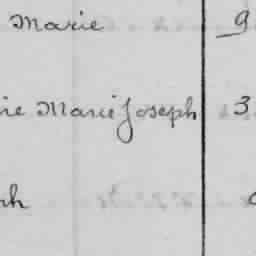 Marie 9
ie Marie Joseph 3
ph